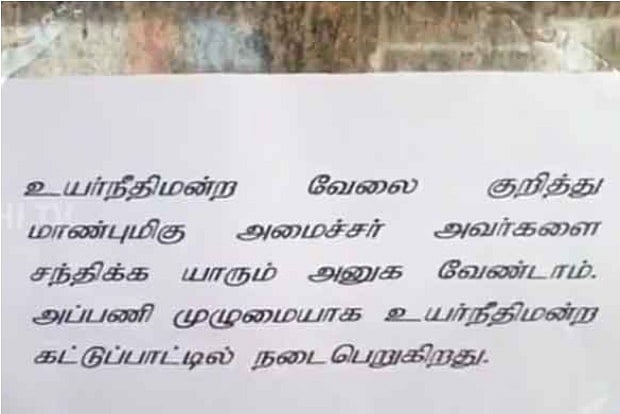 உயர்நீதிமன்ற வேலை குறித்து
மாண்புமிகு அமைச்சர் அவர்களை
சந்திக்க யாரும் அனுக வேண்டாம்.
அப்பணி முழுமையாக உயர்நீதிமன்ற
கட்டுப்பாட்டில் நடைபெறுகிறது.